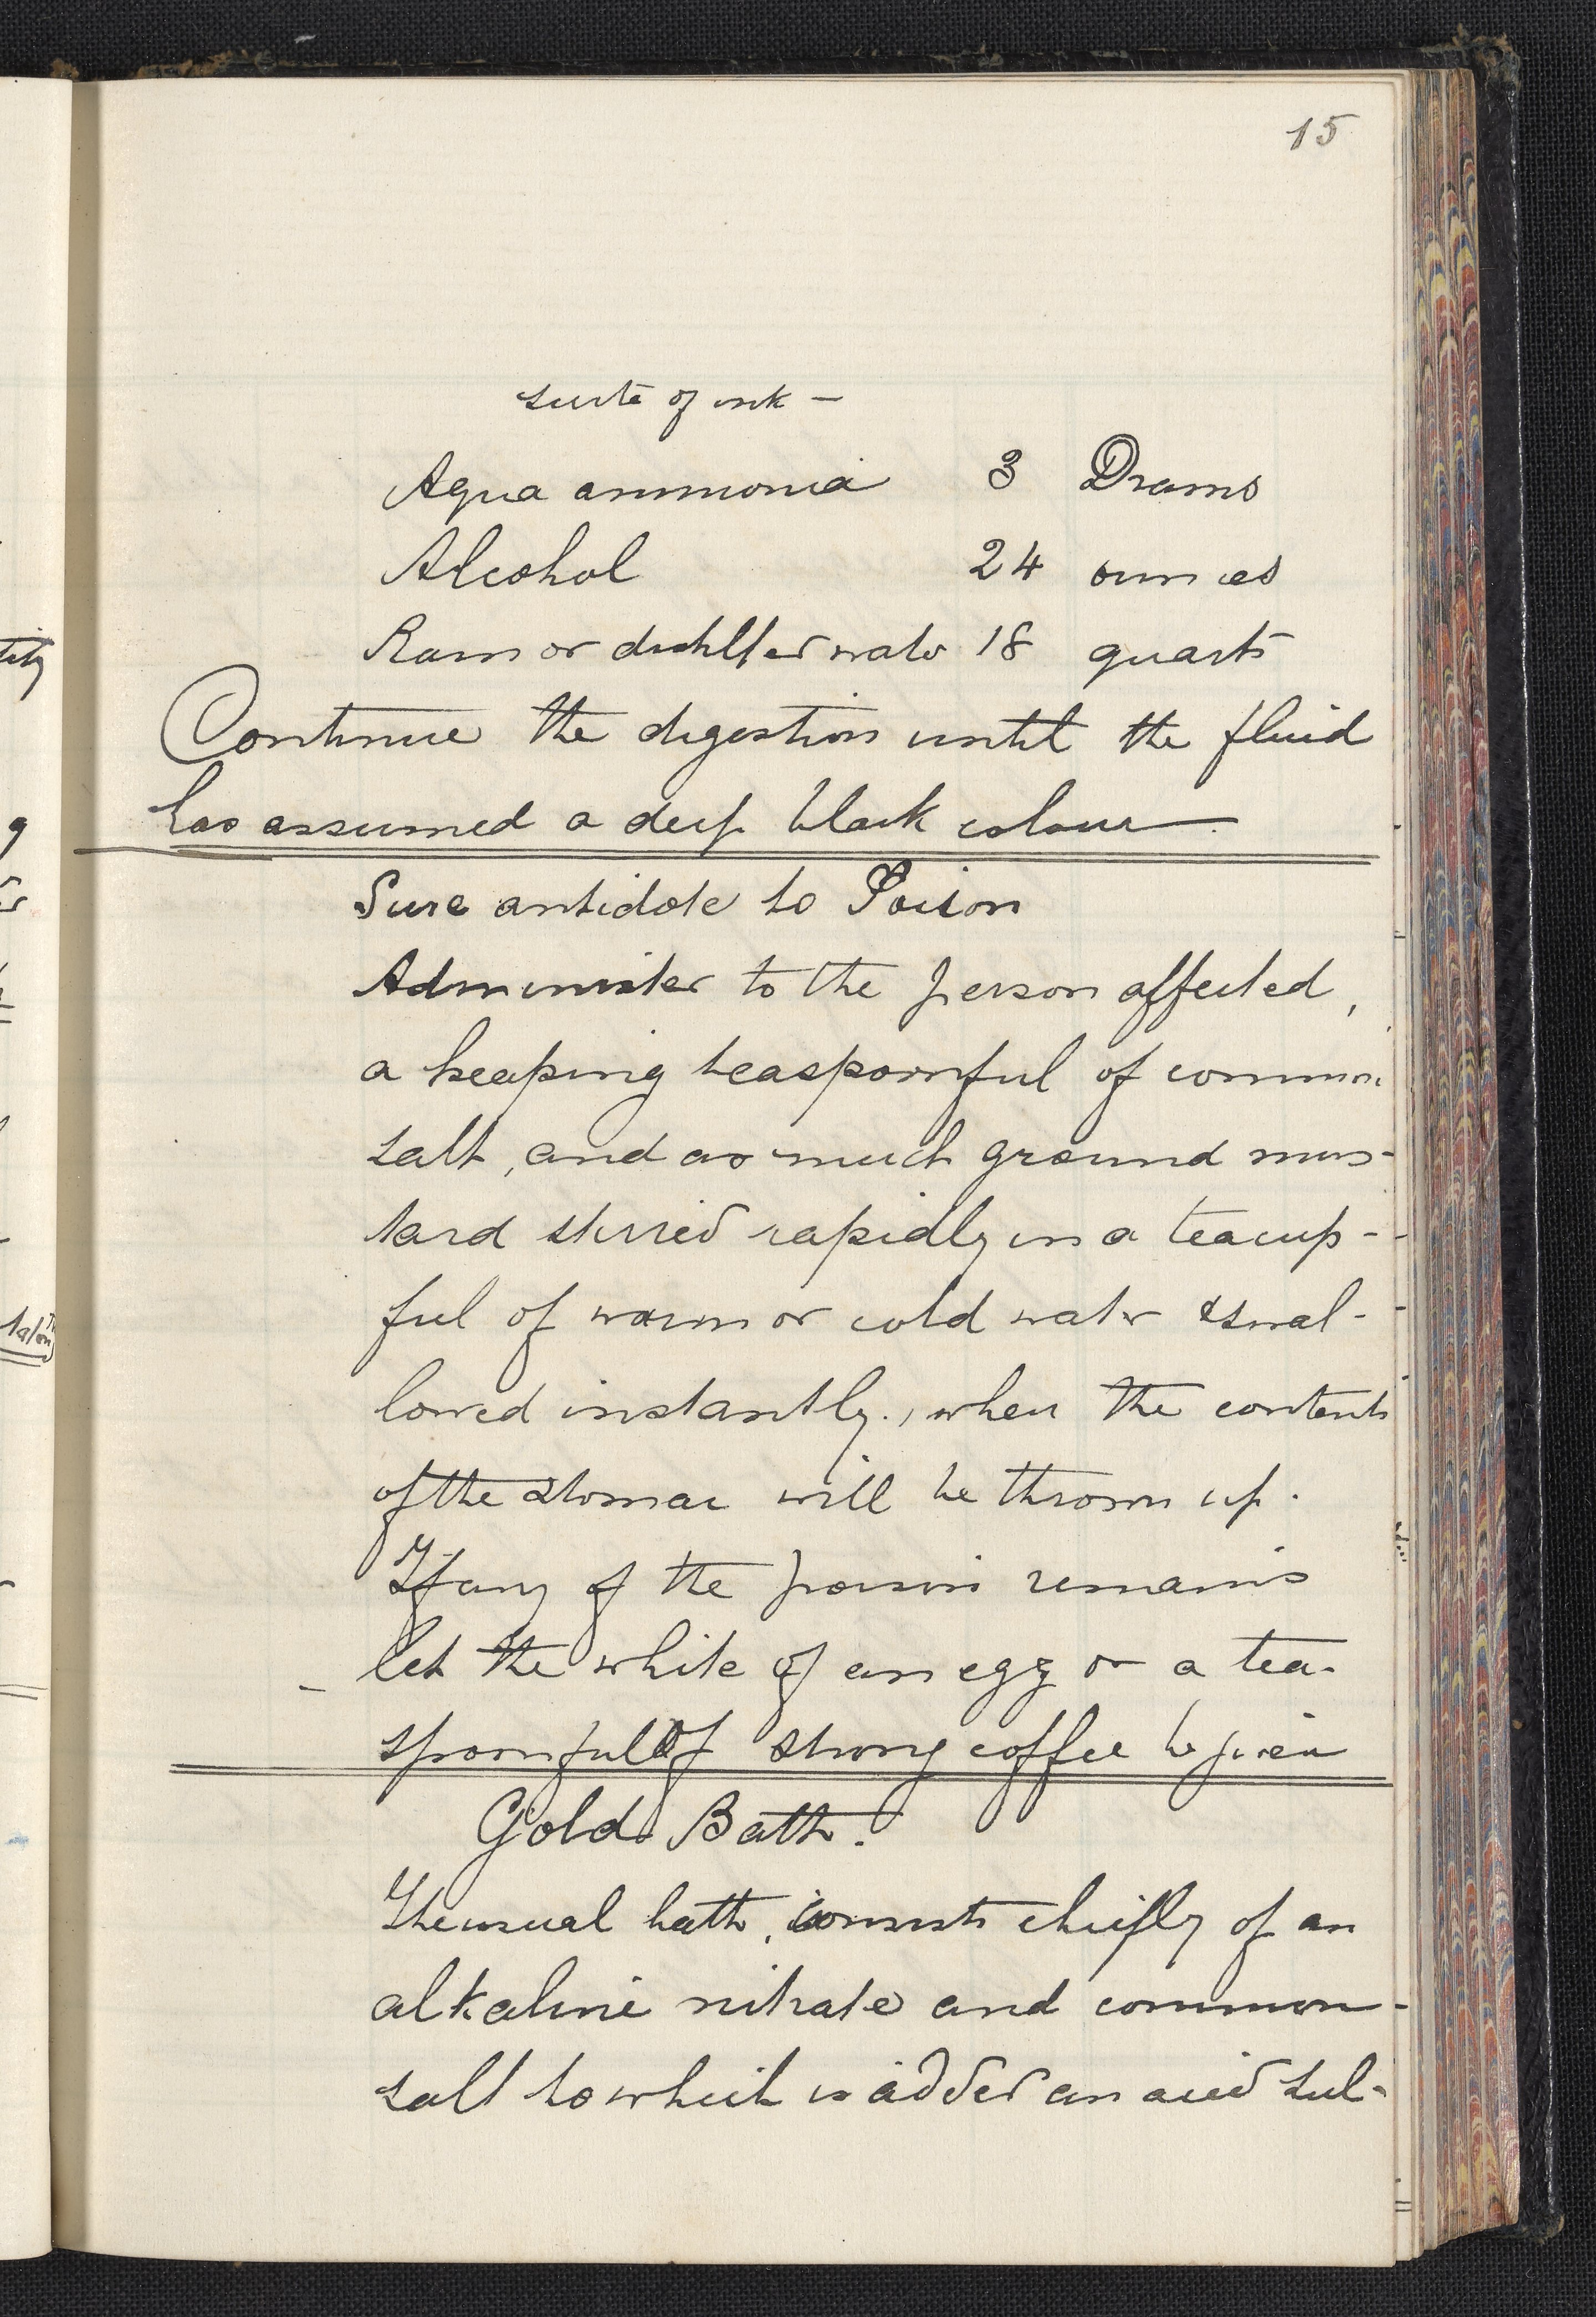 15
suite of ink –
Aqua ammonia 3 Drams
Alcohol 24 ounces
Rain or distilled water 18 quarts
Continue the digestion until the fluid
has assumed a deep black colour
Sure antidote to Poison
Administer to the person affected,
a heaping teaspoonful of common
salt, and as much ground mus-
tard stirred rapidly in a teacup-
ful of warm or cold water & swal-
lowed instantly., when the contents
of the stomac will be thrown up.
If any of the poison remains
let the white of an egg or a tea-
spoonful of strong coffee be given
Gold Bath.
The usual bath, consists chiefly of an
alkaline nitrate and common-
salt to which is added an acid sul-